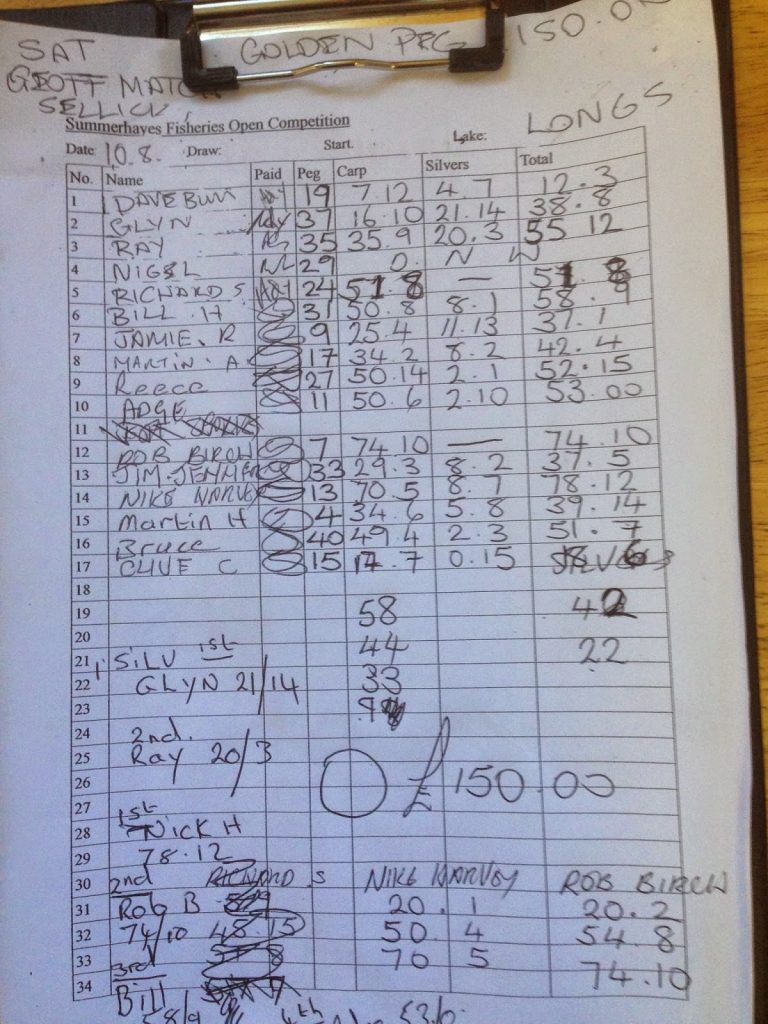 SAT GOLDEN PEG 150.0
GEOFF MATCH
SELLICK LONGS
Summerhayes Fisheries Open Competition
Date 10.8. Draw: Start. Lake:
No. Name Paid Peg Carp Silvers Total
1 DAVE 19 7.12 4.7 12.3
2 GLYN 37 16.10 21.14 38.8
3 RAY 35 35.9 20.3 55 12
4 NIGEL 29 0. N W
5 RICHARD S 24 51 8 — 51 8
6 BILL. H 31 50.8 8.1 58.9
7 JAMIE. R 9 25.4 11.13 37.1
8 MARTIN. A 17 34.2 8.2 42.4
9 Reece 27 50.14 2.1 52.15
10 ADGE 11 50.6 2.10 53.00
11
12 ROB BIRCH 7 74.10 — 74.10
13 JIM. JENNER 33 29.3 8.2 37.5
14 NIKE HARVEY 13 70.5 8.7 78.12
15 Martin H 4 34.6 5.8 39.14
16 Bruce 40 49.4 2.3 51.7
17 CLIVE C 15 17.7 0.15
18
19 58 42
20
21 SILV 1st 44 22
22 GLYN 21/14 33
23
24 2nd.
25 Ray 20/3
26 £150.00
27 1st
28 NICK H
29 78.12
30 2nd RICHARD S NIKE HARVEY ROB BIRCH
31 Rob B 20.1 20.2
32 74/10 48.15 50.4 54.8
33 3rd 70 5 74.10
34 Bill
58/9 4th